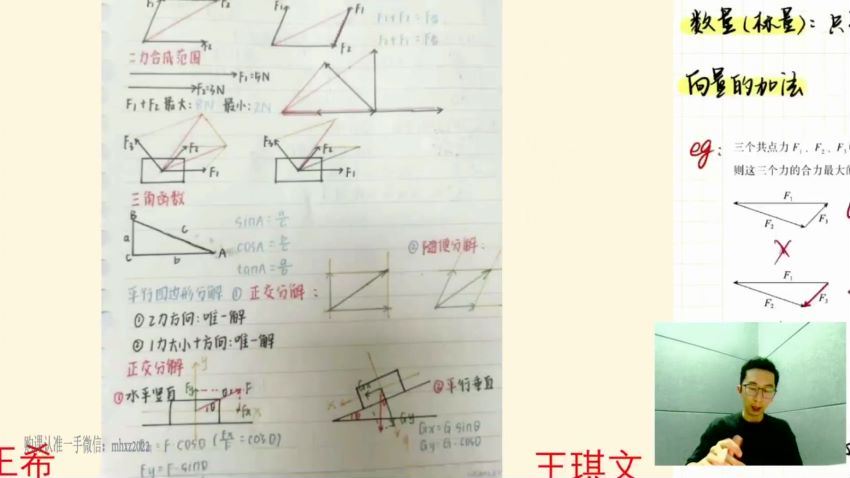 F₁
F₂
F₁
F₁
F₂
F₁+F₂=F合
F₁+F₂=F合
二力合成范围
F₁=5N
F₂=3N
F₁+F₂ 最大: 8N 最小: 2N
F₃
F₂
F₁
F₃
F₂
F₁
三角函数
B
a
c
C
b
A
sinA=a/c
cosA=b/c
tanA=a/b
②随便分解:
平行四边形分解 ①正交分解:
①2力方向:唯一解
②1力大小+方向:唯一解
正交分解
①水平竖直
y
Fy
F
θ
Fx
x
Gx
x
θ
Gy
②平行垂直
Gx=G·sinθ
Gy=G·cosθ
=F·cosθ (Fx/F=cosθ)
Fy=F·sinθ
购课认准一手微信: mhxz2022
王希
王琪文
数量(标量): 只
向量的加法
eg:
三个共点力 F₁、F₂、F₃
则这三个力的合力最大的
F₁
F₂
F₃
F₁
F₂
F₃